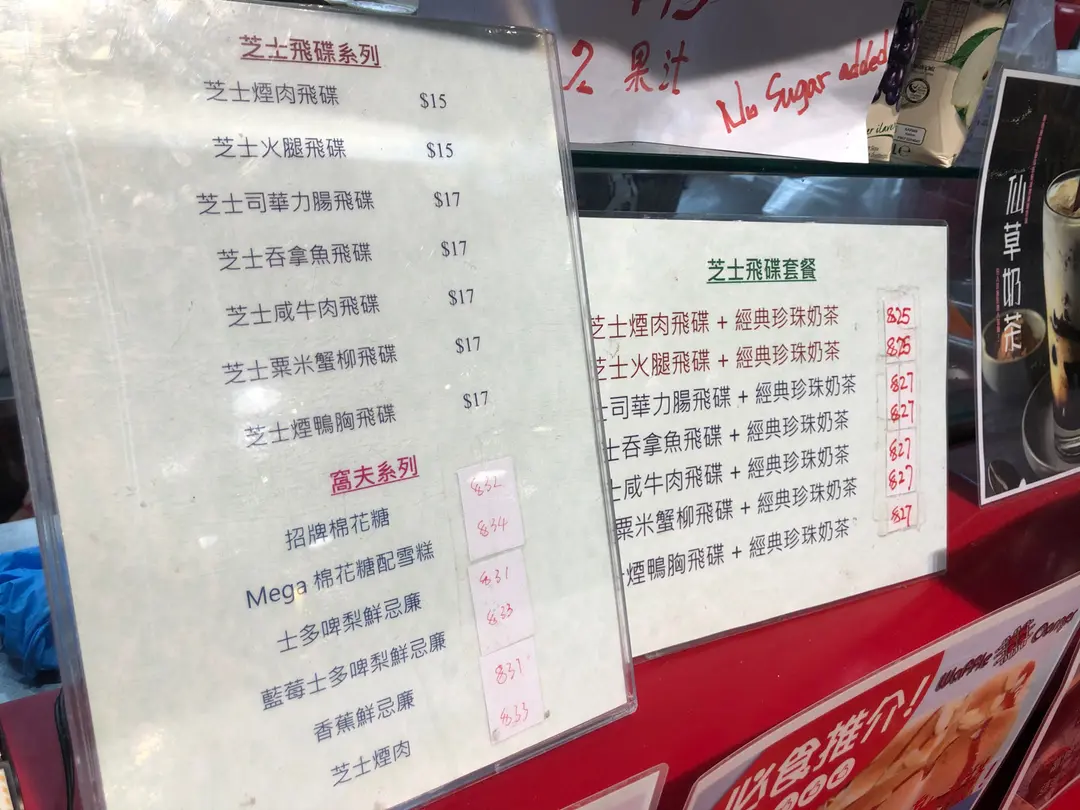 芝士飛碟系列
芝士煙肉飛碟 $15
芝士火腿飛碟 $15
芝士司華力腸飛碟 $17
芝士吞拿魚飛碟 $17
芝士咸牛肉飛碟 $17
芝士粟米蟹柳飛碟 $17
芝士煙鴨胸飛碟 $17
窩夫系列
招牌棉花糖 $32
Mega 棉花糖配雪糕 $34
士多啤梨鮮忌廉 $31
藍莓士多啤梨鮮忌廉 $33
香蕉鮮忌廉 $31
芝士煙肉 $33
2 果汁
No Sugar added
芝士飛碟套餐
芝士煙肉飛碟 + 經典珍珠奶茶 $25
芝士火腿飛碟 + 經典珍珠奶茶 $25
司華力腸飛碟 + 經典珍珠奶茶 $27
士吞拿魚飛碟 + 經典珍珠奶茶 $27
咸牛肉飛碟 + 經典珍珠奶茶 $27
粟米蟹柳飛碟 + 經典珍珠奶茶 $27
煙鴨胸飛碟 + 經典珍珠奶茶 $27
仙草奶茶
Waffle Corner
必食推介!